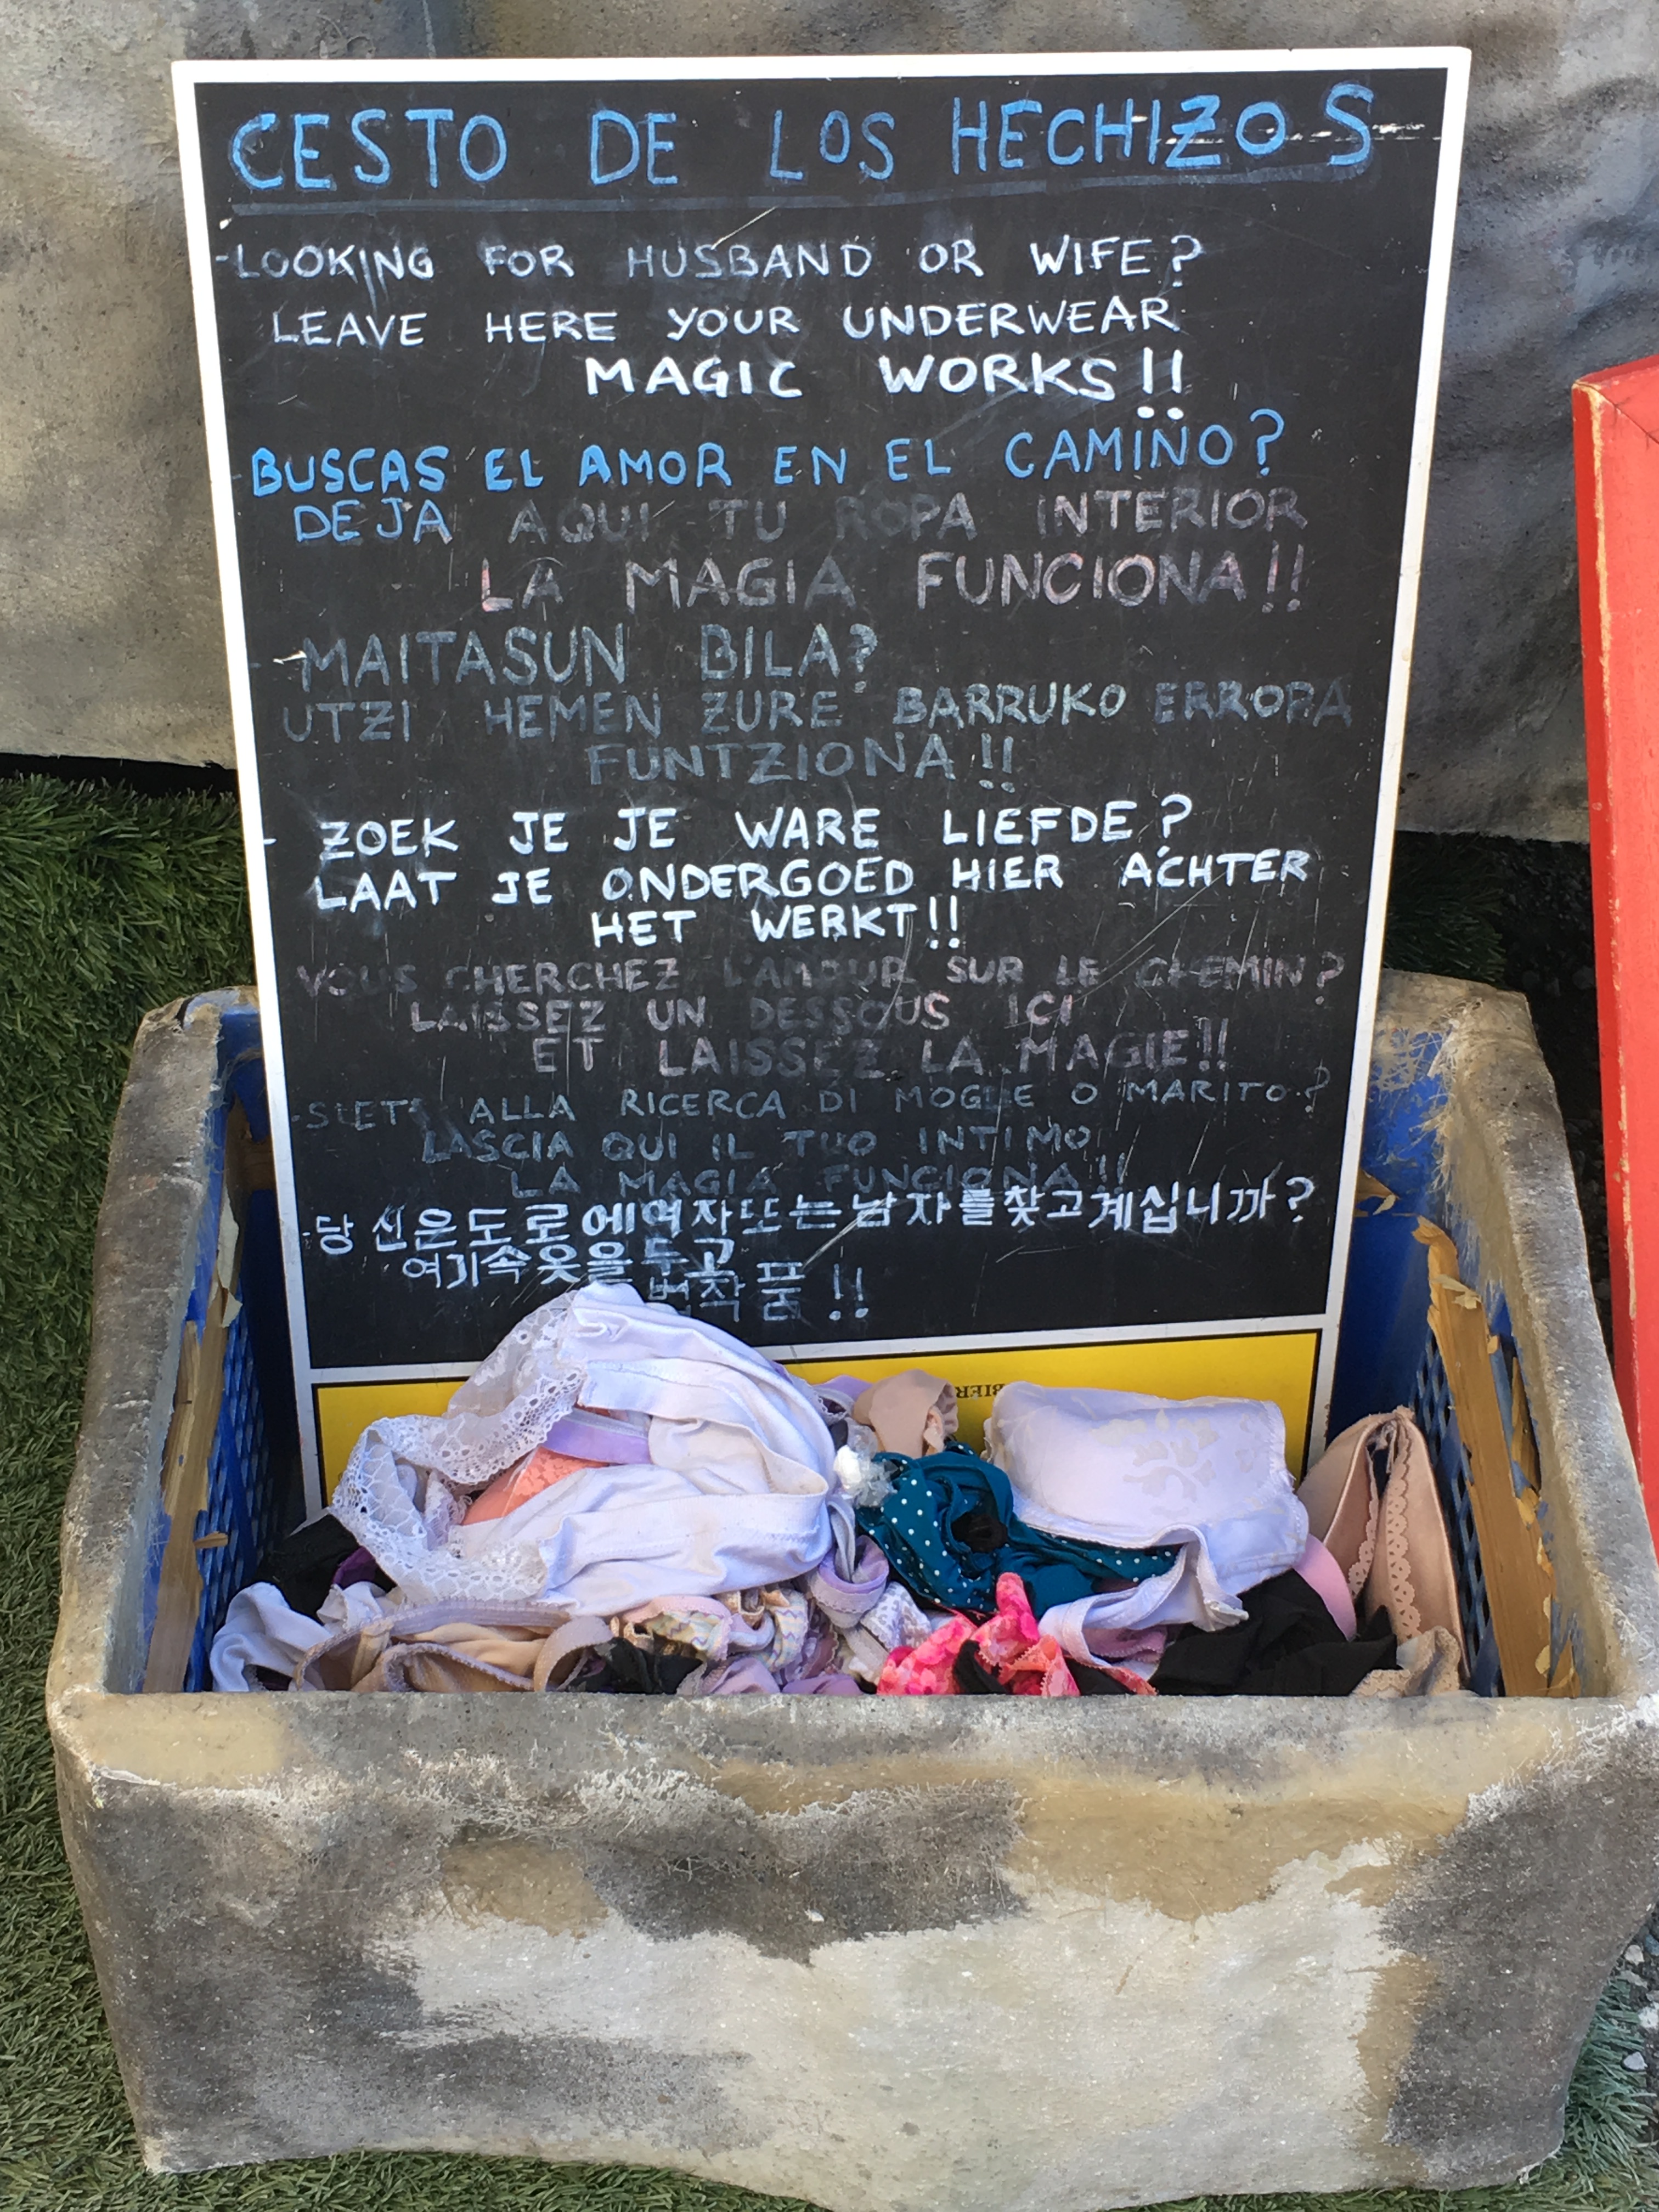 CESTO DE LOS HECHIZOS
-LOOKING FOR HUSBAND OR WIFE?
LEAVE HERE YOUR UNDERWEAR
MAGIC WORKS!!
-BUSCAS EL AMOR EN EL CAMINO?
DEJA AQUI TU ROPA INTERIOR
LA MAGIA FUNCIONA!!
-MAITASUN BILA?
UTZI HEMEN ZURE BARRUKO ERROPA
FUNTZIONA!!
- ZOEK JE JE WARE LIEFDE?
LAAT JE ONDERGOED HIER ACHTER
HET WERKT!!
VOUS CHERCHEZ L'AMOUR SUR LE CHEMIN?
LAISSEZ UN DESSOUS ICI
ET LAISSEZ LA MAGIE!!
-SIETE ALLA RICERCA DI MOGLIE O MARITO?
LASCIA QUI IL TUO INTIMO
LA MAGIA FUNCIONA!!
-당신은도로에여자또는남자를찾고계십니까?
여기속옷을두고
작품!!
BIER